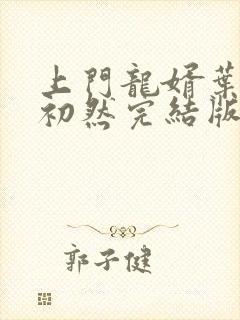 上門龍婿葉
初然完結版
郭子健